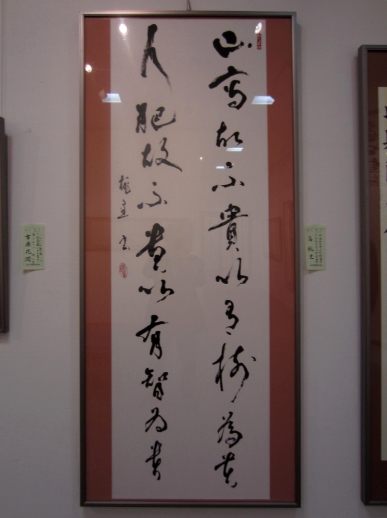 山高故不貴以有樹為貴
人肥故不貴以有智為貴